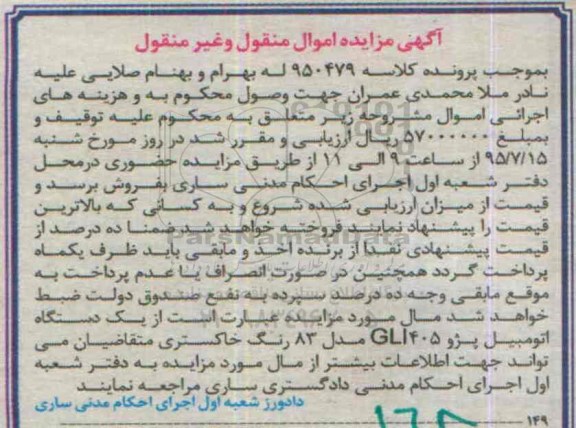 آگهی مزایده اموال منقول وغیر منقول
بموجب پرونده کلاسه ۹۵۰۴۷۹ له بهرام و بهنام صلایی علیه
نادر ملا محمدی عمران جهت وصول محکوم به و هزینه های
اجرائی اموال مشروحه زیر متعلق به محکوم علیه توقیف و
بمبلغ ۵۷۰۰۰۰۰۰ ریال ارزیابی و مقرر شد در روز مورخ شنبه
۹۵/۷/۱۵ از ساعت ۹ الی ۱۱ از طریق مزایده حضوری درمحل
دفتر شعبه اول اجرای احکام مدنی ساری بفروش برسد و
قیمت از میزان ارزیابی شده شروع و به کسانی که بالاترین
قیمت را پیشنهاد نمایند فروخته خواهد شد.ضمنا ده درصد از
قیمت پیشنهادی نقدا از برنده اخذ و مابقی باید ظرف یکماه
پرداخت گردد همچنین در صورت انصراف یا عدم پرداخت به
موقع مابقی وجه ده درصد سپرده به نفع صندوق دولت ضبط
خواهد شد مال مورد مزایده عبارت است از یک دستگاه
اتومبیل پژو GLI۴۰۵ مدل ۸۳ رنگ خاکستری متقاضیان می
تواند جهت اطلاعات بیشتر از مال مورد مزایده به دفتر شعبه
اول اجرای احکام مدنی دادگستری ساری مراجعه نمایند
دادورز شعبه اول اجرای احکام مدنی ساری
۱۴۹
ParsNamadData